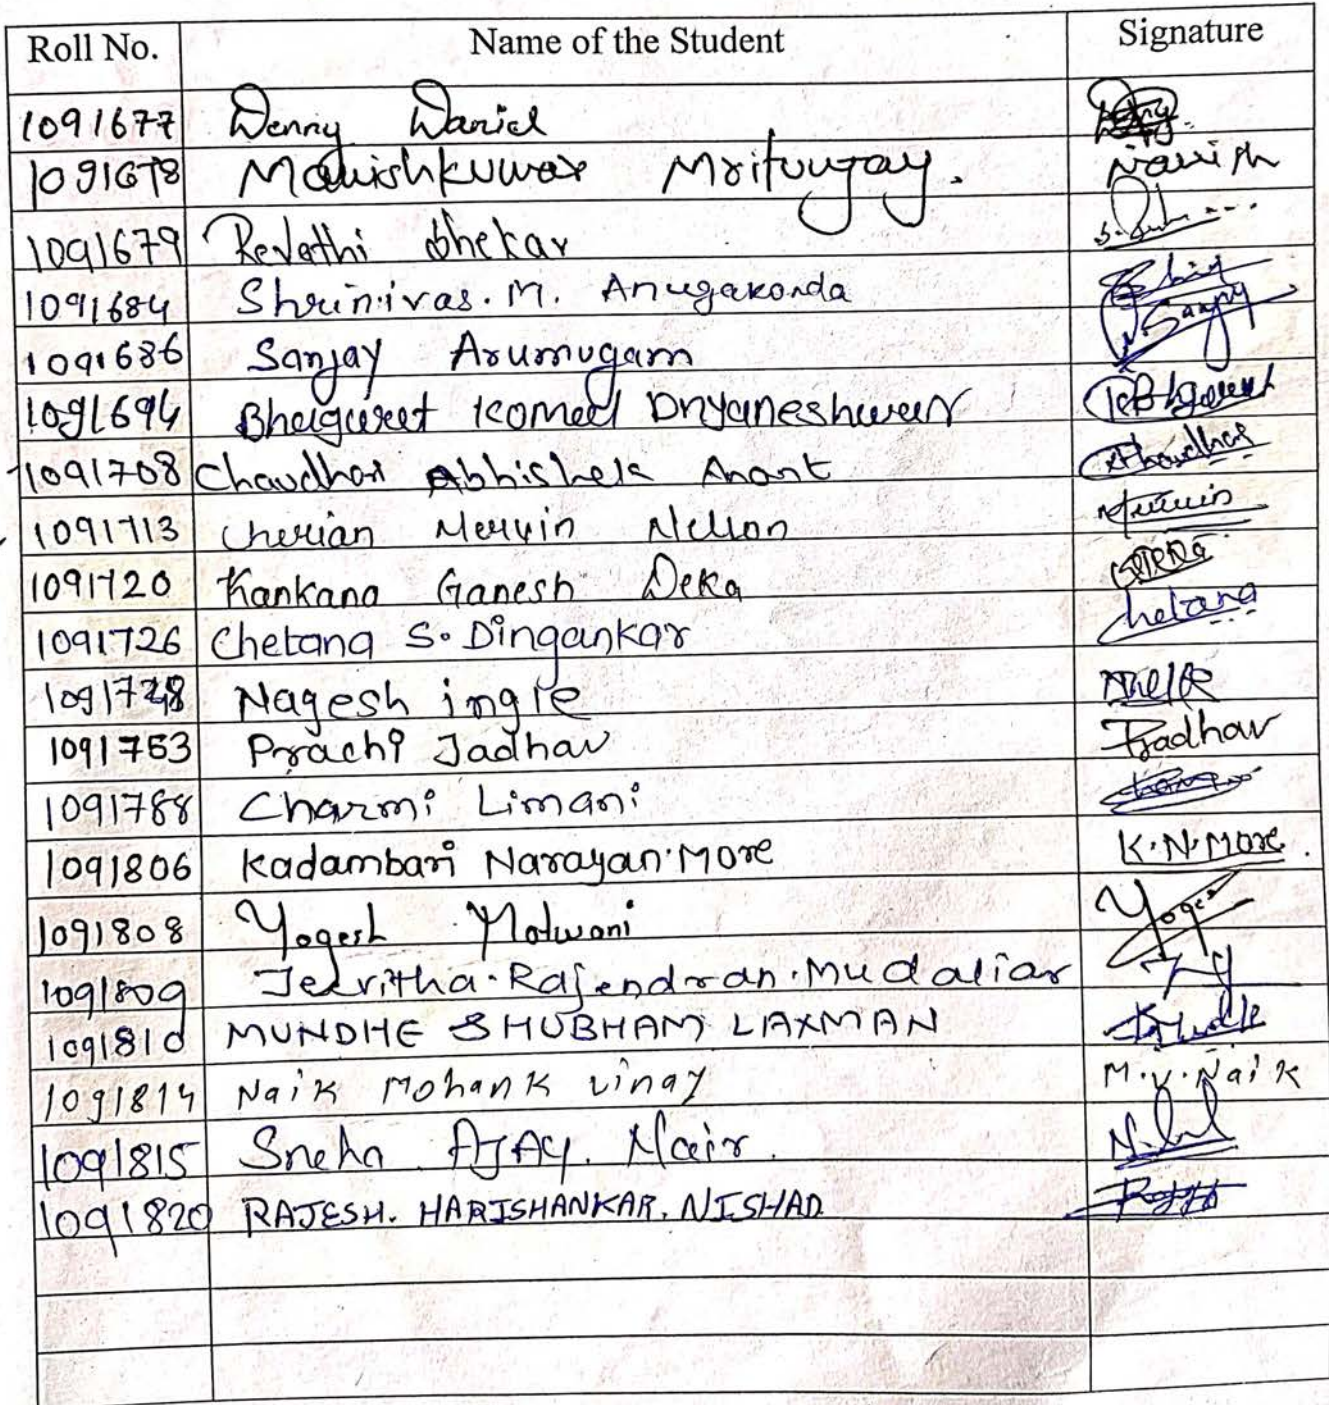 Roll No. Name of the Student Signature
1091677 Denny Daniel
1091678 Manishkumar Mritunjay. Manish
1091679 Revathi Shekar
1091684 Shrinivas. M. Anugakonda
1091686 Sanjay Arumugam Sanjay
1091694 Bhagwat Komal Dnyaneshwar KBhagwat
1091708 Chaudhari Abhishek Anant
1091713 Cherian Mervin Nelson Mervin
1091720 Kankana Ganesh Deka
1091726 Chetana S. Dingankar Chetana
1091728 Nagesh ingle
1091753 Prachi Jadhav PJadhav
1091788 Charmi Limani
1091806 Kadambari Narayan.More K.N.More.
1091808 Yogesh Motwani Yogesh
1091809 Jeevitha.Rajendran.Mudaliar
1091810 MUNDHE SHUBHAM LAXMAN
1091814 Naik Mohank vinay M.V.Naik
1091815 Sneha AJAY. Nair.
1091820 RAJESH. HARISHANKAR. NISHAD